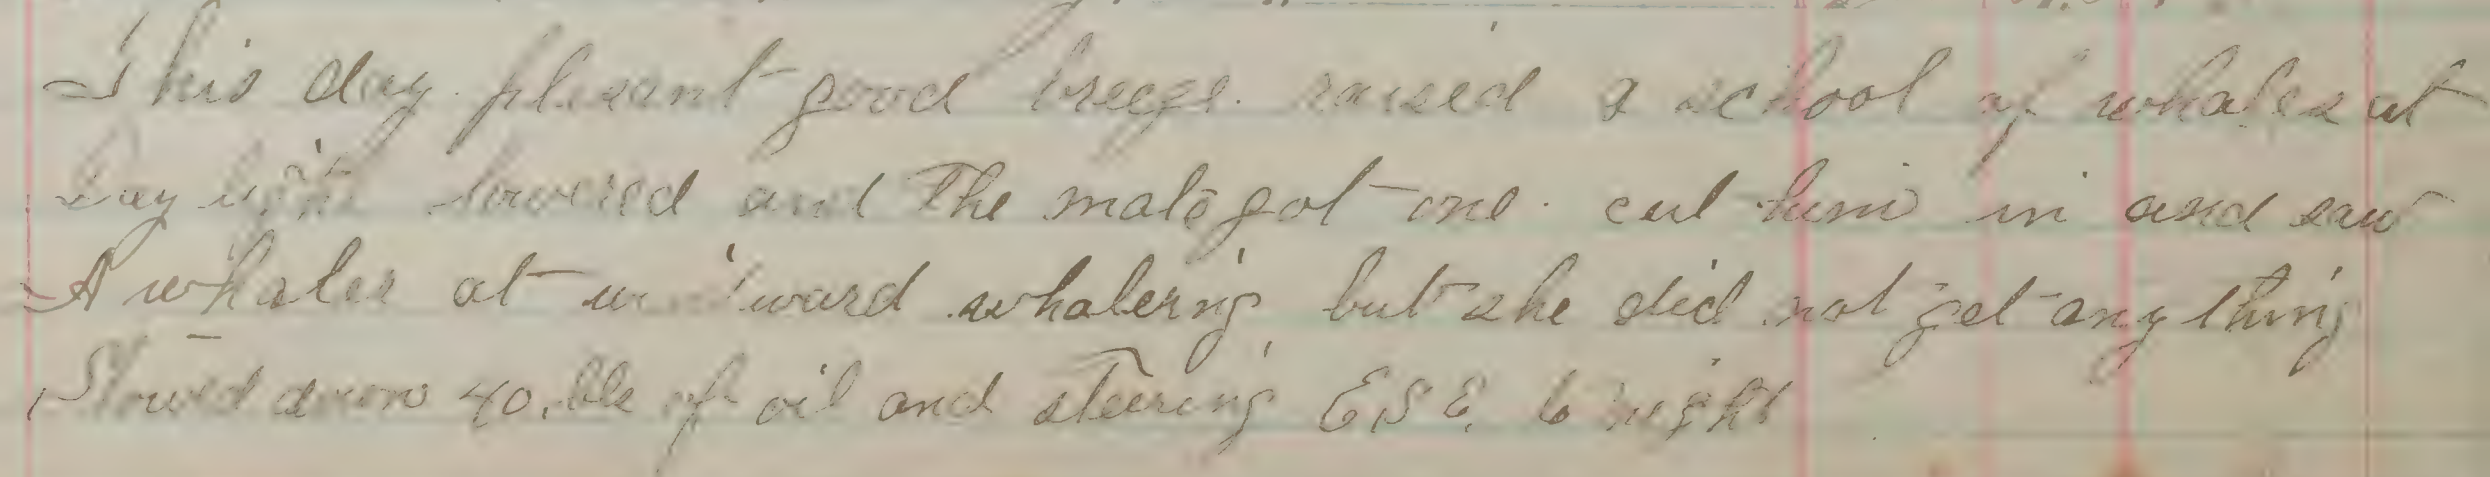 This day plesant good breeze raised a school of whales at
Day light lowered and The mate got one cut him in and saw
A whaler at windward whalering but she did not get any thing
Stowed down 40. bls of oil and steering E S E, to night